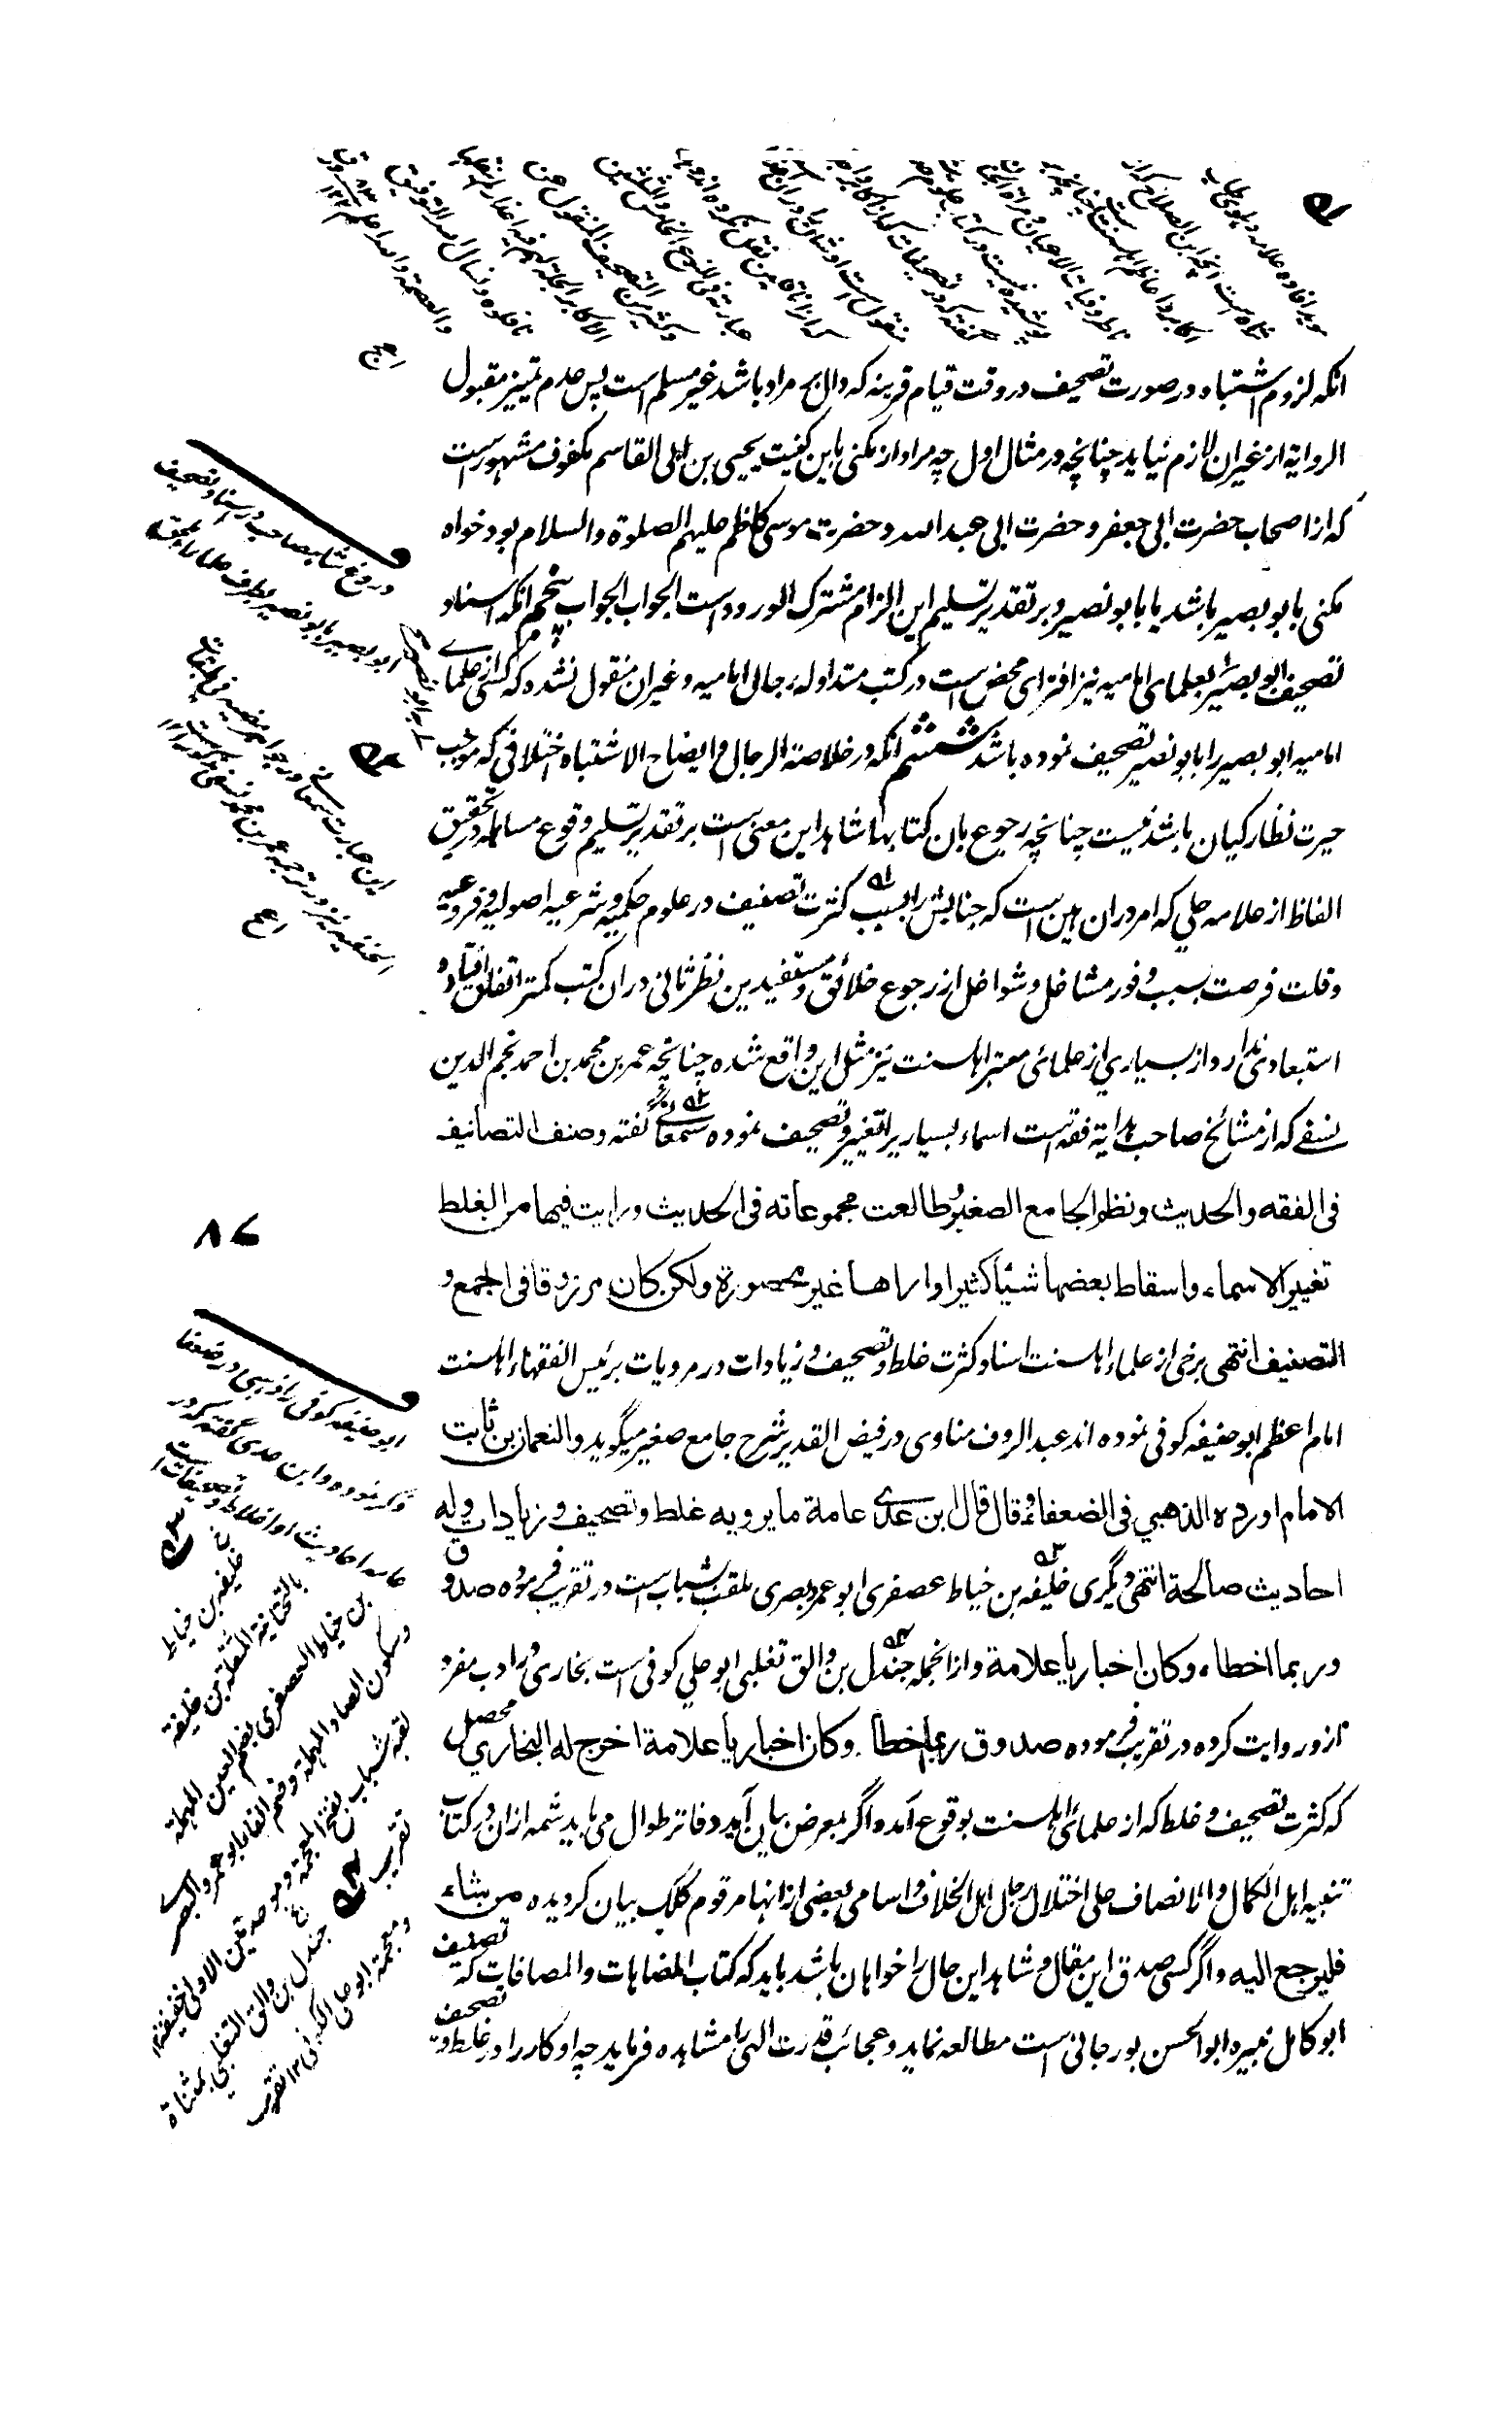 انکه لزوم اشتباه در صورت تصحیف در وقت قیام قرینه که دال بر مراد باشد غیر مسلم است پس عدم تمییز مقبول
الروایة از غیر ان لازم نیاید چنانچه در مثال اول چه مراد از مکنی باین کنیت یحیی بن ابی القاسم مکفوف مشهور است
که از اصحاب حضرت ابی جعفر و حضرت ابی عبد الله و حضرت موسی کاظم علیهم الصلوة والسلام بود خواه
مکنی بابو بصیر باشد یا بابو نصیر و بر تقدیر تسلیم این الزام مشترک الورود است الجواب الجواب پنجم انکه اسناد
تصحیف ابو بصیر بعلمای امامیه نیز افترای محض است در کتب متداوله رجالی امامیه و غیر ان منقول نشده که کسی از علمای
امامیه ابو بصیر را بابو نصیر تصحیف نموده باشد ششم انکه در خلاصة الرجال و ایضاح الاشتباه اختلافی که موجب
حیرت نظارکیان باشد نیست چنانچه رجوع بان کتابها شاهد این معنی است بر تقدیر تسلیم وقوع مساهله در تحقیق
الفاظ از علامه حلی که امر دران هین است که جنابش را بسبب کثرت تصنیف در علوم حکمیه و شرعیه اصولیه و فروعیه
و قلت فرصت بسبب وفور مشاغل و شواغل از رجوع خلائق و مستفیدین نظر ثانی دران کتب کمتر اتفاق افتاد و
استبعادی ندارد و از بسیاری از علمائی معتبر اهلسنت نیز مثل این واقع شده چنانچه عمر بن محمد بن احمد نجم الدین
نسفی که از مشائخ صاحب هدایة فقه است اسماء بسیاری را تغییر و تصحیف نموده سمعانی گفته وصنف التصانیف
فی الفقه والحدیث ونظم الجامع الصغیر وطالعت مجموعاته فی الحدیث ورایت فیها من الغلط
تغییر الاسماء واسقاط بعضها شیئا کثیرا واراها غیر محصورة ولکن کان مرزوقا فی الجمع و
التصنیف انتهی برخی از علماء اهلسنت اسناد کثرت غلط و تصحیف و زیادات در مرویات برئیس الفقهاء اهلسنت
امام اعظم ابو حنیفه کوفی نموده اند عبد الروف مناوی در فیض القدیر شرح جامع صغیر میگوید والنعمان بن ثابت
الامام اورده الذهبی فی الضعفاء وقال قال ابن عدی عامة ما یرویه غلط وتصحیف وزیادات وله
احادیث صالحة انتهی و دیگری خلیفه بن خیاط عصفری ابو عمرو بصری ملقب بشباب است در تقریب فرموده صدوق
وربما اخطاء وکان اخباریا علامة و از انجمله جندل بن والق تغلبی ابو علی کوفی است بخاری در ادب مفرد
ازو روایت کرده در تقریب فرموده صدوق ربما اخطأ وکان اخباریا علامة اخرج له البخاری محصل
که کثرت تصحیف و غلط که از علمائی اهلسنت بوقوع آمده اگر بمعرض بیان آید دفاتر طوال می باید شمه ازان در کتاب
تنبیه اهل الکمال والانصاف علی اختلال رجال اهل الخلاف و اسامی بعضی از انها مرقوم کلک بیان کردیده من شاء
فلیرجع الیه و اگر کسی صدق این مقال و شاهد این حال را خواهان باشد باید که کتاب المضاهات والمصافات که تصنیف
ابو کامل نبیره ابو الحسن بورجانی است مطالعه نماید و عجائب قدرت الهی را مشاهده فرماید چه او کار را در غلط و تصحیف
۸۷
دروغ شاهصاحب در اسناد تصحیف
ابو بصیر بابو نصیر بطرف علما امامیه
این عبارت سمعانی در جواهر مضیه فی طبقات
الحنفیه نیز در ترجمه عمر بن محمد نسفی مذکور است ۱۲
ابو حنیفه کوفی را ذهبی در ضعفا
ذکر نموده و ابن عدی گفته که در
عامه احادیث او اغلاط و تصحیفات است
خلیفه بن خیاط
بالتحتانیة المثقلة بن خلیفة
بن خیاط العصفری بضم العین المهملة
وسکون الصاد المهملة وضم الفاء ابو عمرو البصری
لقبه شباب بفتح المعجمة وموحدتین الاولی خفیفة ۱۲
تقریب
جندل بن والق التغلبی بمثناة
ومعجمة ابو علی الکوفی ۱۲ تقریب